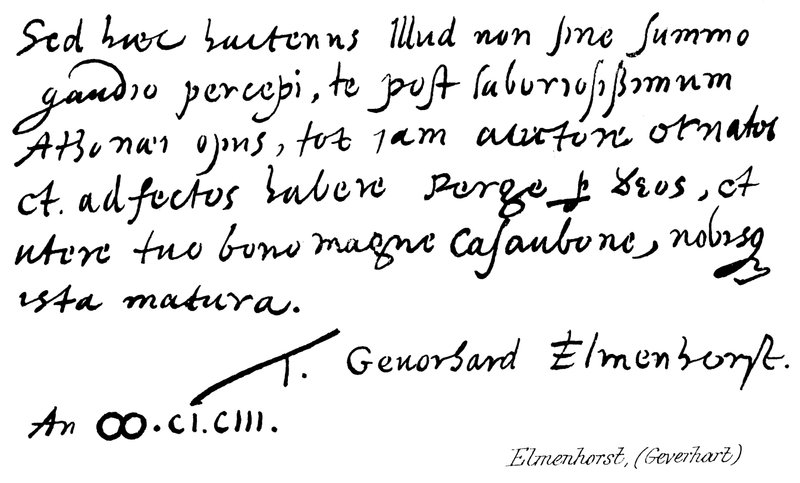 Sed hæc hactenus Illud non sine summo
gaudio percepi, te post laboriosißimum
Athenæi opus, tot iam auctore ornatos
et. adfectos habere perge Deos, et
utere tuo bono magne Casaubone, nobisq
ista matura.
T. Geuerhard Elmenhorst.
An ∞.CI.CIII.
Elmenhorst, (Geverhart)